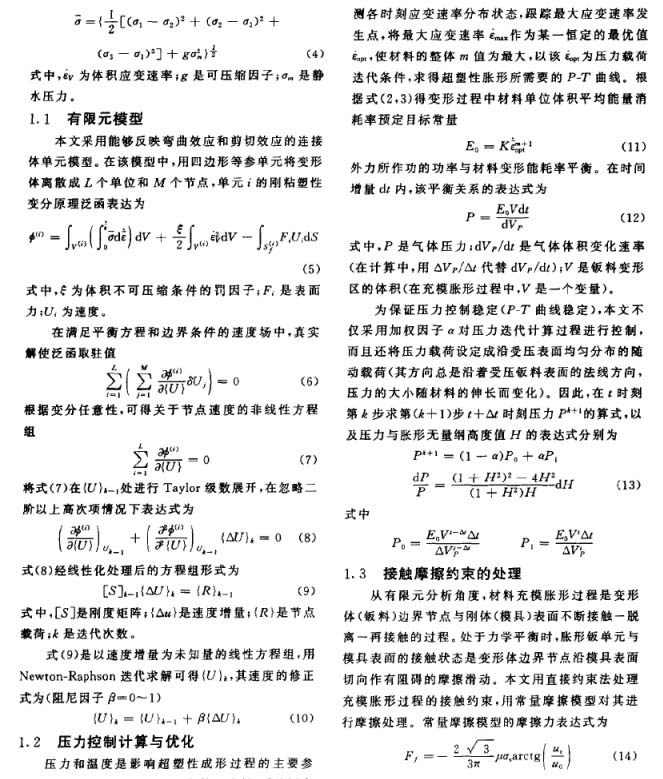 σ̄ = {½[(σ₁ − σ₂)² + (σ₂ − σ₃)² +
(σ₃ − σ₁)²] + gσₘ²}^{1/2} (4)
式中,ε̇_V 为体积应变速率;g 是可压缩因子;σₘ 是静
水压力。
1.1 有限元模型
本文采用能够反映弯曲效应和剪切效应的连接
体单元模型。在该模型中,用四边形等参单元将变形
体离散成 L 个单位和 M 个节点,单元 i 的刚粘塑性
变分原理泛函表达为
ϕ^{(i)} = ∫_{V^{(i)}} (∫₀^{ε̇} σ̄dε̇) dV + ξ/2 ∫_{V^{(i)}} ε̇_V² dV − ∫_{S_f^{(i)}} F_iU_idS
(5)
式中,ξ 为体积不可压缩条件的罚因子;F_i 是表面
力;U_i 为速度。
在满足平衡方程和边界条件的速度场中,真实
解使泛函取驻值
∑_{i=1}^{L} (∑_{j=1}^{M} ∂ϕ^{(i)}/∂{U} δU_j) = 0 (6)
根据变分任意性,可得关于节点速度的非线性方程
组
∑_{i=1}^{L} ∂ϕ^{(i)}/∂{U} = 0 (7)
将式(7)在{U}_{k−1}处进行 Taylor 级数展开,在忽略二
阶以上高次项情况下表达式为
(∂ϕ^{(i)}/∂{U})_{U_{k−1}} + (∂²ϕ^{(i)}/∂²{U})_{U_{k−1}} {ΔU}_k = 0 (8)
式(8)经线性化处理后的方程组形式为
[S]_{k−1}{ΔU}_k = {R}_{k−1} (9)
式中,[S]是刚度矩阵;{Δu}是速度增量;{R}是节点
载荷;k 是迭代次数。
式(9)是以速度增量为未知量的线性方程组,用
Newton-Raphson 迭代求解可得{U}_k,其速度的修正
式为(阻尼因子 β=0~1)
{U}_k = {U}_{k−1} + β{ΔU}_k (10)
1.2 压力控制计算与优化
压力和温度是影响超塑性成形过程的主要参
测各时刻应变速率分布状态,跟踪最大应变速率发
生点,将最大应变速率 ε̇_max 作为某一恒定的最优值
ε̇_opt,使材料的整体 m 值为最大,以该 ε̇_opt 为压力载荷
迭代条件,求得超塑性胀形所需要的 P-T 曲线。根
据式(2,3)得变形过程中材料单位体积平均能量消
耗率预定目标常量
E₀ = Kε̇_opt^{m+1} (11)
外力所作功的功率与材料变形能耗率平衡。在时间
增量 dt 内,该平衡关系的表达式为
P = E₀Vdt/dV_P (12)
式中,P 是气体压力;dV_P/dt 是气体体积变化速率
(在计算中,用 ΔV_P/Δt 代替 dV_P/dt);V 是钣料变形
区的体积(在充模胀形过程中,V 是一个变量)。
为保证压力控制稳定(P-T 曲线稳定),本文不
仅采用加权因子 α 对压力迭代计算过程进行控制,
而且还将压力载荷设定成沿受压表面均匀分布的随
动载荷(其方向总是沿着受压钣料表面的法线方向,
压力的大小随材料的伸长而变化)。因此,在 t 时刻
第 k 步求第(k+1)步 t+Δt 时刻压力 P^{k+1}的算式,以
及压力与胀形无量纲高度值 H 的表达式分别为
P^{k+1} = (1 − α)P₀ + αP₁
dP/P = ((1 + H²)² − 4H²)/((1 + H²)H) dH (13)
式中
P₀ = E₀V^{t−Δt}Δt/ΔV_P^{t−Δt} P₁ = E₀V^tΔt/ΔV_P^t
1.3 接触摩擦约束的处理
从有限元分析角度,材料充模胀形过程是变形
体(钣料)边界节点与刚体(模具)表面不断接触一脱
离一再接触的过程。处于力学平衡时,胀形钣单元与
模具表面的接触状态是变形体边界节点沿模具表面
切向作有阻碍的摩擦滑动。本文用直接约束法处理
充模胀形过程的接触约束,用常量摩擦模型对其进
行摩擦处理。常量摩擦模型的摩擦力表达式为
F_f = − (2√3/3π) μσ_s arctg(u_r/u_c) (14)